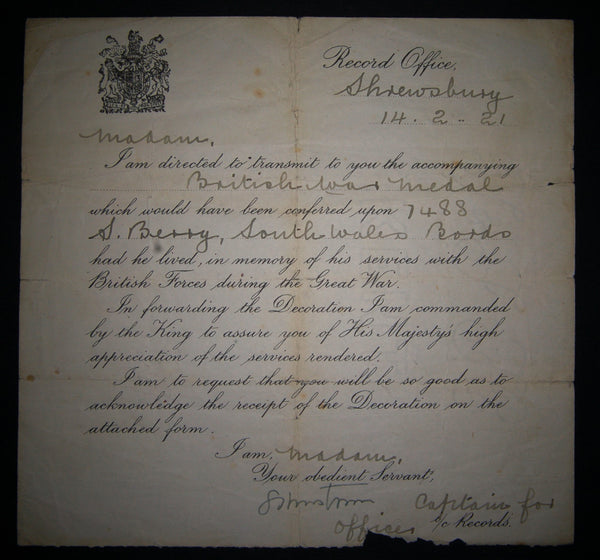 Record Office,
Shrewsbury
14. 2. 21
Madam,
I am directed to transmit to you the accompanying
British War Medal
which would have been conferred upon 7488
S. Berry, South Wales Bords
had he lived, in memory of his services with the
British Forces during the Great War.
In forwarding the Decoration I am commanded
by the King to assure you of His Majesty's high
appreciation of the services rendered.
I am to request that you will be so good as to
acknowledge the receipt of the Decoration on the
attached form.
I am, Madam,
Your obedient Servant,
Captain for
Officer i/c Records.